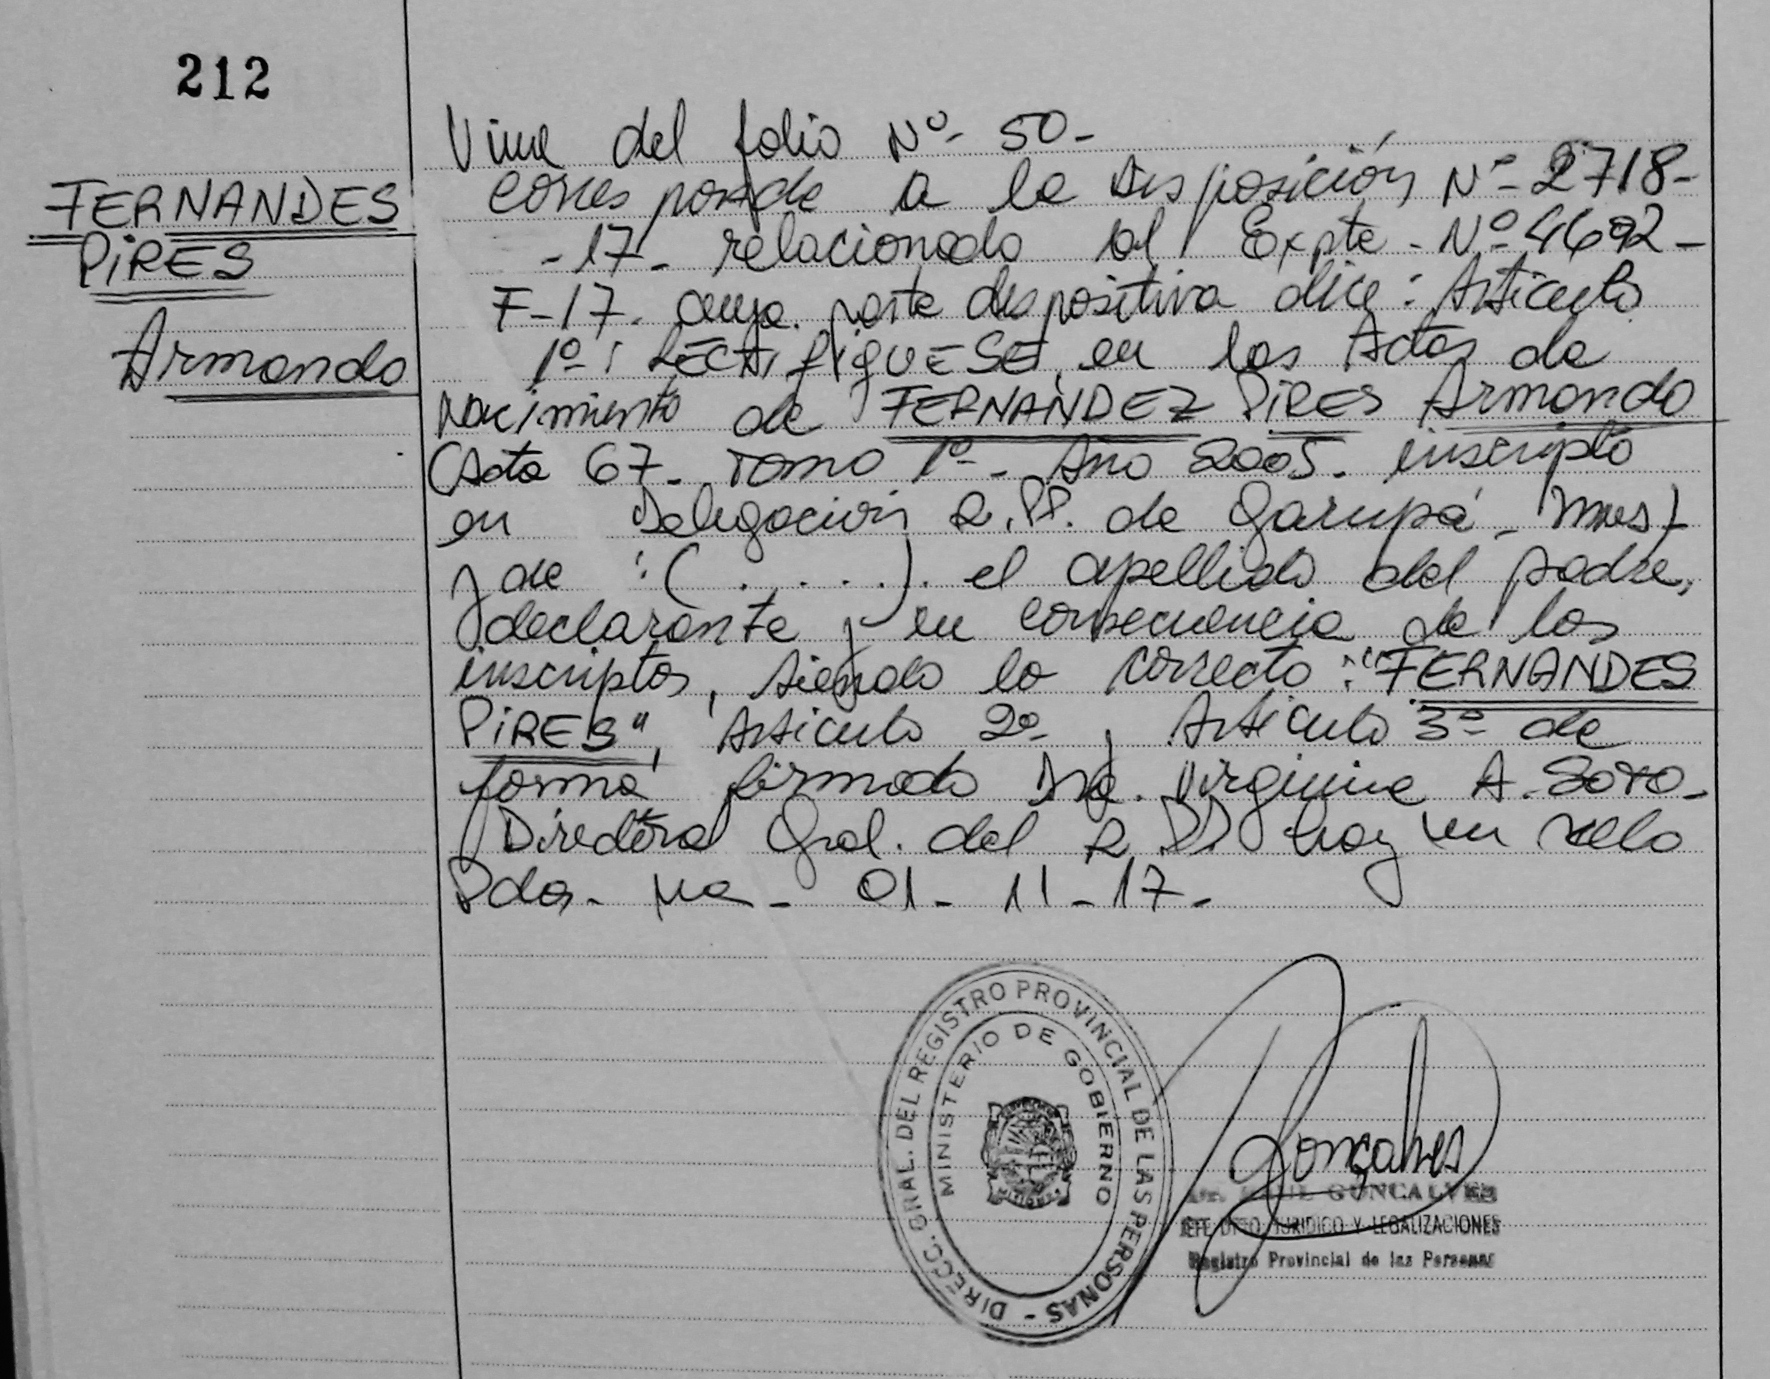 212
FERNANDES
PIRES
Armando
Viene del folio Nº- 50-
corresponde a la Disposición Nº- 2718-
-17- relacionado al Expte - Nº- 4692-
F-17. cuya parte dispositiva dice: Artículo
1º: RECTIFIQUESE, en las Actas de
nacimiento de FERNANDEZ PIRES Armando
(Acta 67- Tomo 1º-. Año 2005. inscripto
en Delegación R.PP. de Garupá - Mnes)
y de :( . . . . ). el apellido del padre,
declarante y en consecuencia de los
inscriptos, siendo lo correcto: "FERNANDES
PIRES", Artículo 2º y Artículo 3º de
forma firmado Dra. Virginia A. Soto-
Directora Gral. del R.PP hay un sello
Pdas- Mes- 01- 11-17-
DIRECC. GRAL. DEL REGISTRO PROVINCIAL DE LAS PERSONAS -
MINISTERIO DE GOBIERNO
MISIONES
Gonçalves
Dr. RAUL GONCALVES
JEFE DPTO. JURIDICO Y LEGALIZACIONES
Registro Provincial de las Personas